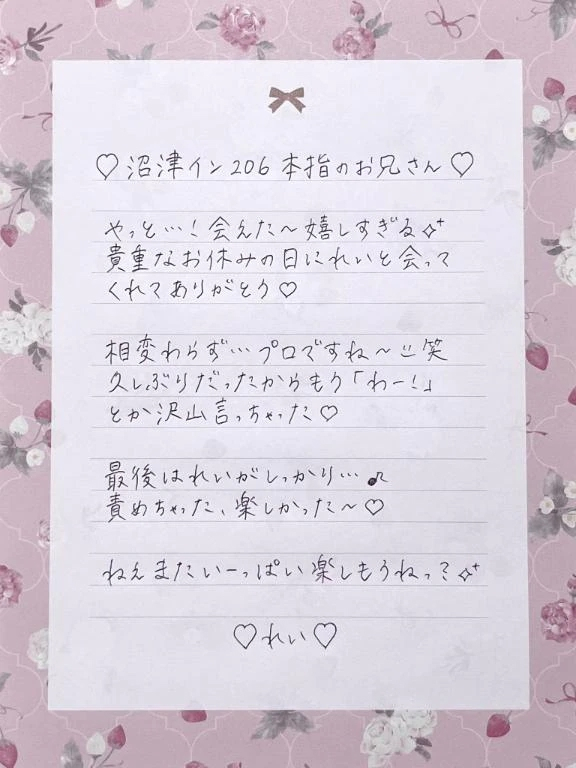 ♡沼津イン206本指のお兄さん♡
やっと…!会えた〜嬉しすぎる✧⁺
貴重なお休みの日にれいと会って
くれてありがとう♡
相変わらず…プロですね〜笑
久しぶりだったからもう「わー!」
とか沢山言っちゃった♡
最後はれいがしっかり…♪
責めちゃった、楽しかった〜♡
ねえまたいーっぱい楽しもうねっ?✧⁺
♡れい♡